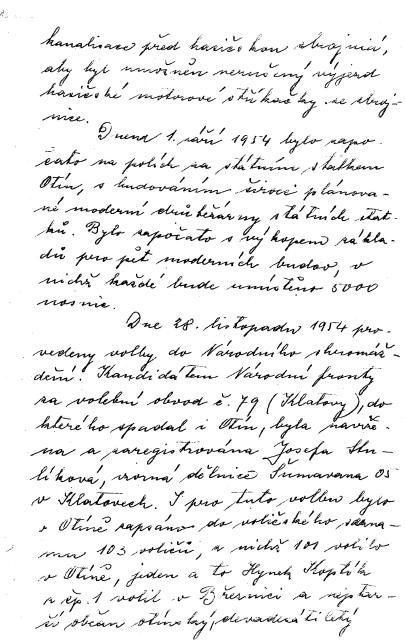 kanalisace před hasičskou zbrojnicí,
aby byl umožněn nerušený výjezd
hasičské motorové stříkačky ze zbroj-
nice.
Dnem 1. září 1954 bylo zapo-
čato na polích za státním statkem
Otín, s budováním široce plánova-
né moderní drůbežárny státních stat-
ků. Bylo započato s výkopem zákla-
dů pro pět moderních budov, v
nichž každé bude umístěno 5000
nosnic.
Dne 28. listopadu 1954 pro-
vedeny volby do Národního shromáž-
dění. Kandidátem Národní fronty
za volební obvod č. 79 (Klatovy), do
kterého spadal i Otín, byla navrže-
na a zaregistrována Josefa Stu-
líková, vzorná dělnice Šumavanu 05
v Klatovech. I pro tuto volbu bylo
v Otíně zapsáno do voličského sezna-
mu 103 voličů, z nichž 101 volilo
v Otíně, jeden a to Hynek
z čp. 1 volil v Březnici a nejstar-
ší občan otínský, devadesátiletý